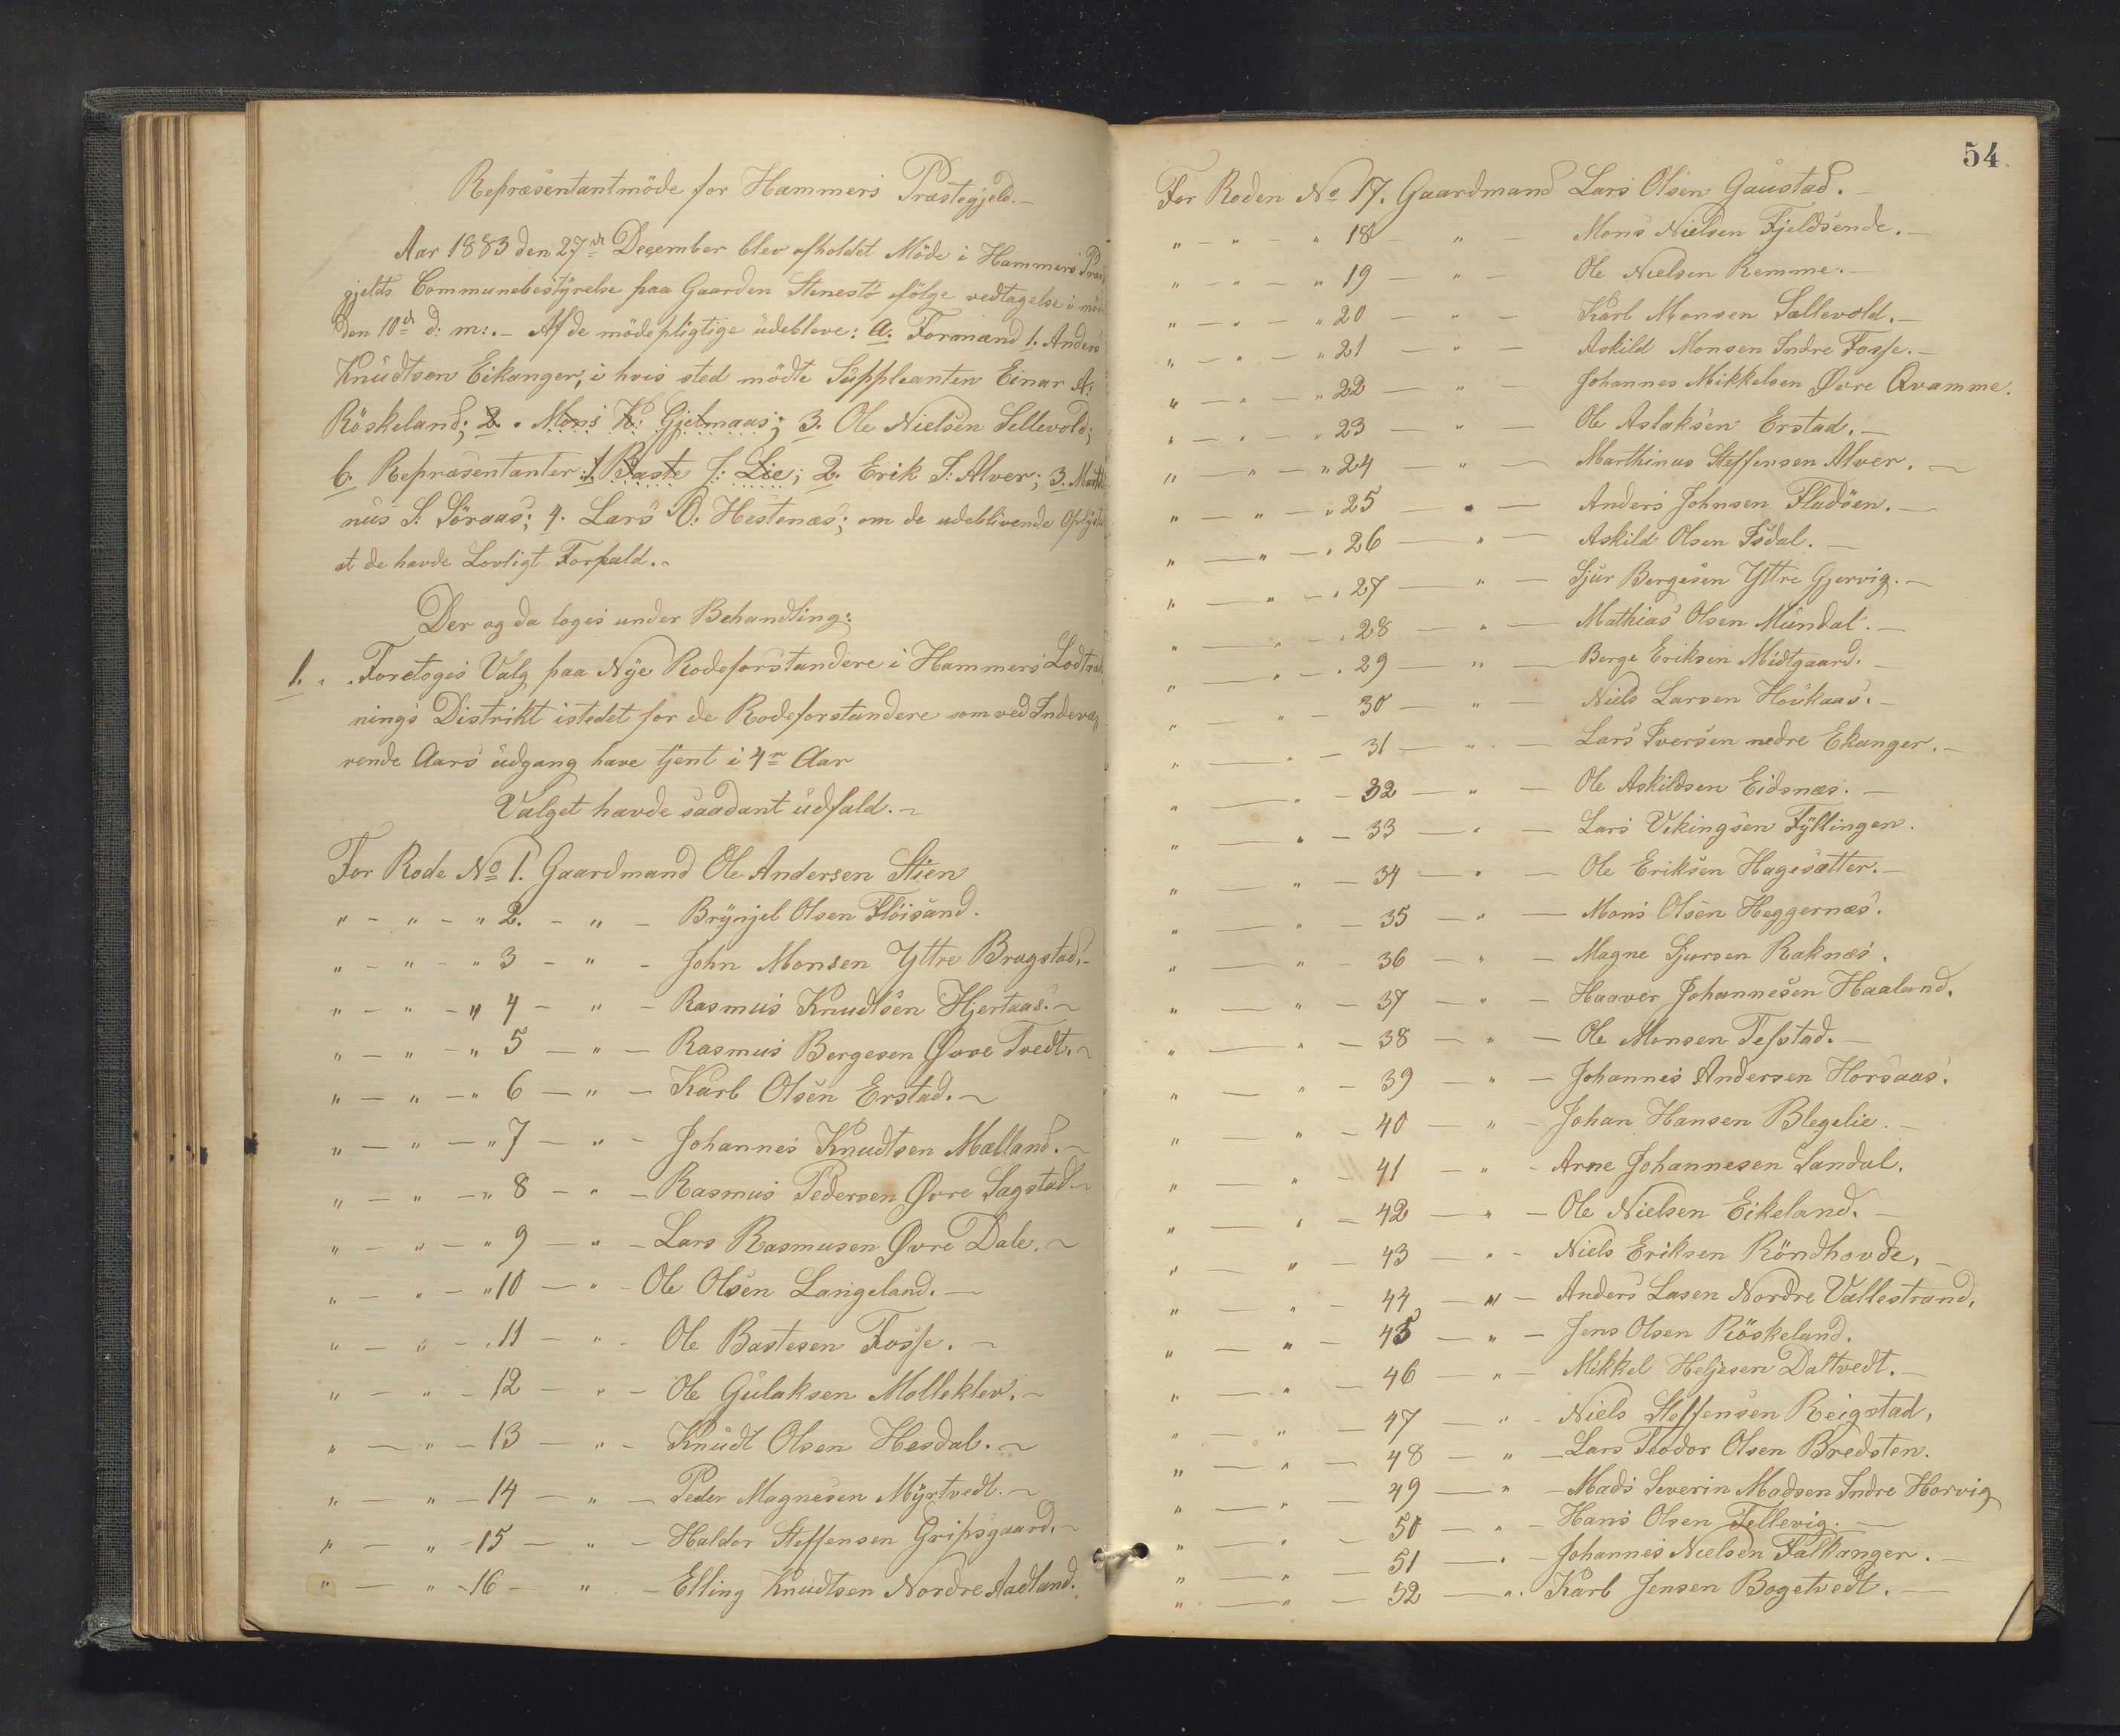 Repræsentantmöde for Hammers Præstegjeld.-
Aar 1883 den 27de December blev afholdet Möde i Hammers Præste
gjelds Communebestyrelse paa Gaarden Stenestö ifölge vedtagelse i möde
den 10de d: m:.- Af de mödepligtige udebleve: a. Formænd 1. Anders
Knudtsen Eikanger, i hvis sted mödte Suppleanten Einar A:
Röskeland; 2. Mons K: Gjelmaas; 3. Ole Nielsen Sellevold;
b. Repræsentanter: 1 Baste J: Lie; 2. Erik S: Alver; 3. Marthi
nus S: Söraas; 4. Lars O: Hestenæs; om de udeblivende Oplystes
at de havde Lovligt Forfald.-
Der og da toges under Behandling:
1. Foretoges Valg paa Nye Rodeforstandere i Hammers Lodtræk
nings Distrikt istedet for de Rodeforstandere som ved Indevæ„
rende Aars udgang have tjent i 4r Aar
Valget havde saadant udfald.-
For Rode No 1. Gaardmand Ole Andersen Stien
" - " - " 2. - " - Brynjel Olsen Flöisand.
" - " - " 3 - " - John Monsen Yttre Bragstad.-
" - " - " 4 - " - Rasmus Knudtsen Hjertaas.-
" - " - " 5 - " - Rasmus Bergesen Øvre Tvedt.-
" - " - " 6 - " - Karl Olsen Erstad.-
" - " - " 7 - " - Johannes Knudtsen Mælland.-
" - " - " 8 - " - Rasmus Pedersen Øvre Sagstad.-
" - " - " 9 - " - Lars Rasmusen Øvre Dale.-
" - " - " 10 - " - Ole Olsen Langeland.-
" - " - " 11 - " - Ole Bastesen Fosse.-
" - " - 12 - " - Ole Gulaksen Molleklev.-
" - " - 13 - " - Knudt Olsen Hesdal.-
" - " - 14 - " - Peder Magnesen Myrtvedt.-
" - " - 15 - " - Haldor Steffensen Gripsgaard.-
" - " - 16 - " - Elling Knudtsen Nordre Aadland.
54.
For Roden No 17. Gaardmand Lars Olsen Gaustad.-
" - " " 18 - " - Mons Nielsen Fjeldsende.-
" - " - " 19 - " - Ole Nielsen Remme.-
" - " - " 20 - " - Karl Monsen Sællevold.-
" - " - " 21 - " - Askild Monsen Indre Fosse.-
" - " - " 22 - " - Johannes Mikkelsen Øvre Qvamme.
" - " - " 23 - " - Ole Aslaksen Erstad.-
" - " - " 24 " - Marthinus Steffensen Alver.-
" - " - " 25 - " - Anders Johnsen Fladöen.-
" - " - " 26 - " - Askild Olsen Isdal.-
" - " - " 27 - " - Sjur Bergesen Yttre Gjervig.-
" - " - " 28 - " - Mathias Olsen Mundal.-
" - " - " 29 - " - Berge Eriksen Midtgaard.-
" - " - 30 - " - Niels Larsen Houkaas.-
" - " - 31 - " - Lars Iversen nedre Ekanger.-
" - " - 32 - " - Ole Askildsen Eidsnæs.-
" - " - 33 - " - Lars Vikingsen Fyllingen.
" - " - 34 - " - Ole Eriksen Hagesætter.-
" - " - 35 - " - Mons Olsen Heggernæs.
" - " - 36 - " - Magne Sjursen Raknæs.
" - " - 37 - " - Haaver Johannesen Haaland.
" - " - 38 - " - Ole Monsen Tefstad.-
" - " - 39 - " - Johannes Andersen Horsaas.
" - " - 40 - " - Johan Hansen Blegelie.-
" - " - 41 - " - Arne Johannesen Sandal.
" - " - 42 - " - Ole Nielsen Eikeland.-
" - " - 43 - " - Niels Eriksen Röndhovde.-
" - " - 44 - " - Anders Lasen Nordre Vallestrand.
" - " - 45 - " - Jens Olsen Röskeland.
" - " - 46 - " - Mikkel Heljesen Daltvedt.-
" - " - 47 - " - Niels Steffensen Reigstad.
" - " - 48 - " - Lars Teodor Olsen Bredsten.
" - " - 49 - " - Mads Severin Madsen Indre Horvig
" - " - 50 - " - Hans Olsen Tellevig.-
" - " - 51 - " - Johannes Nielsen Falkanger.-
" - " - 52 - " - Karl Jensen Bogetvedt.-